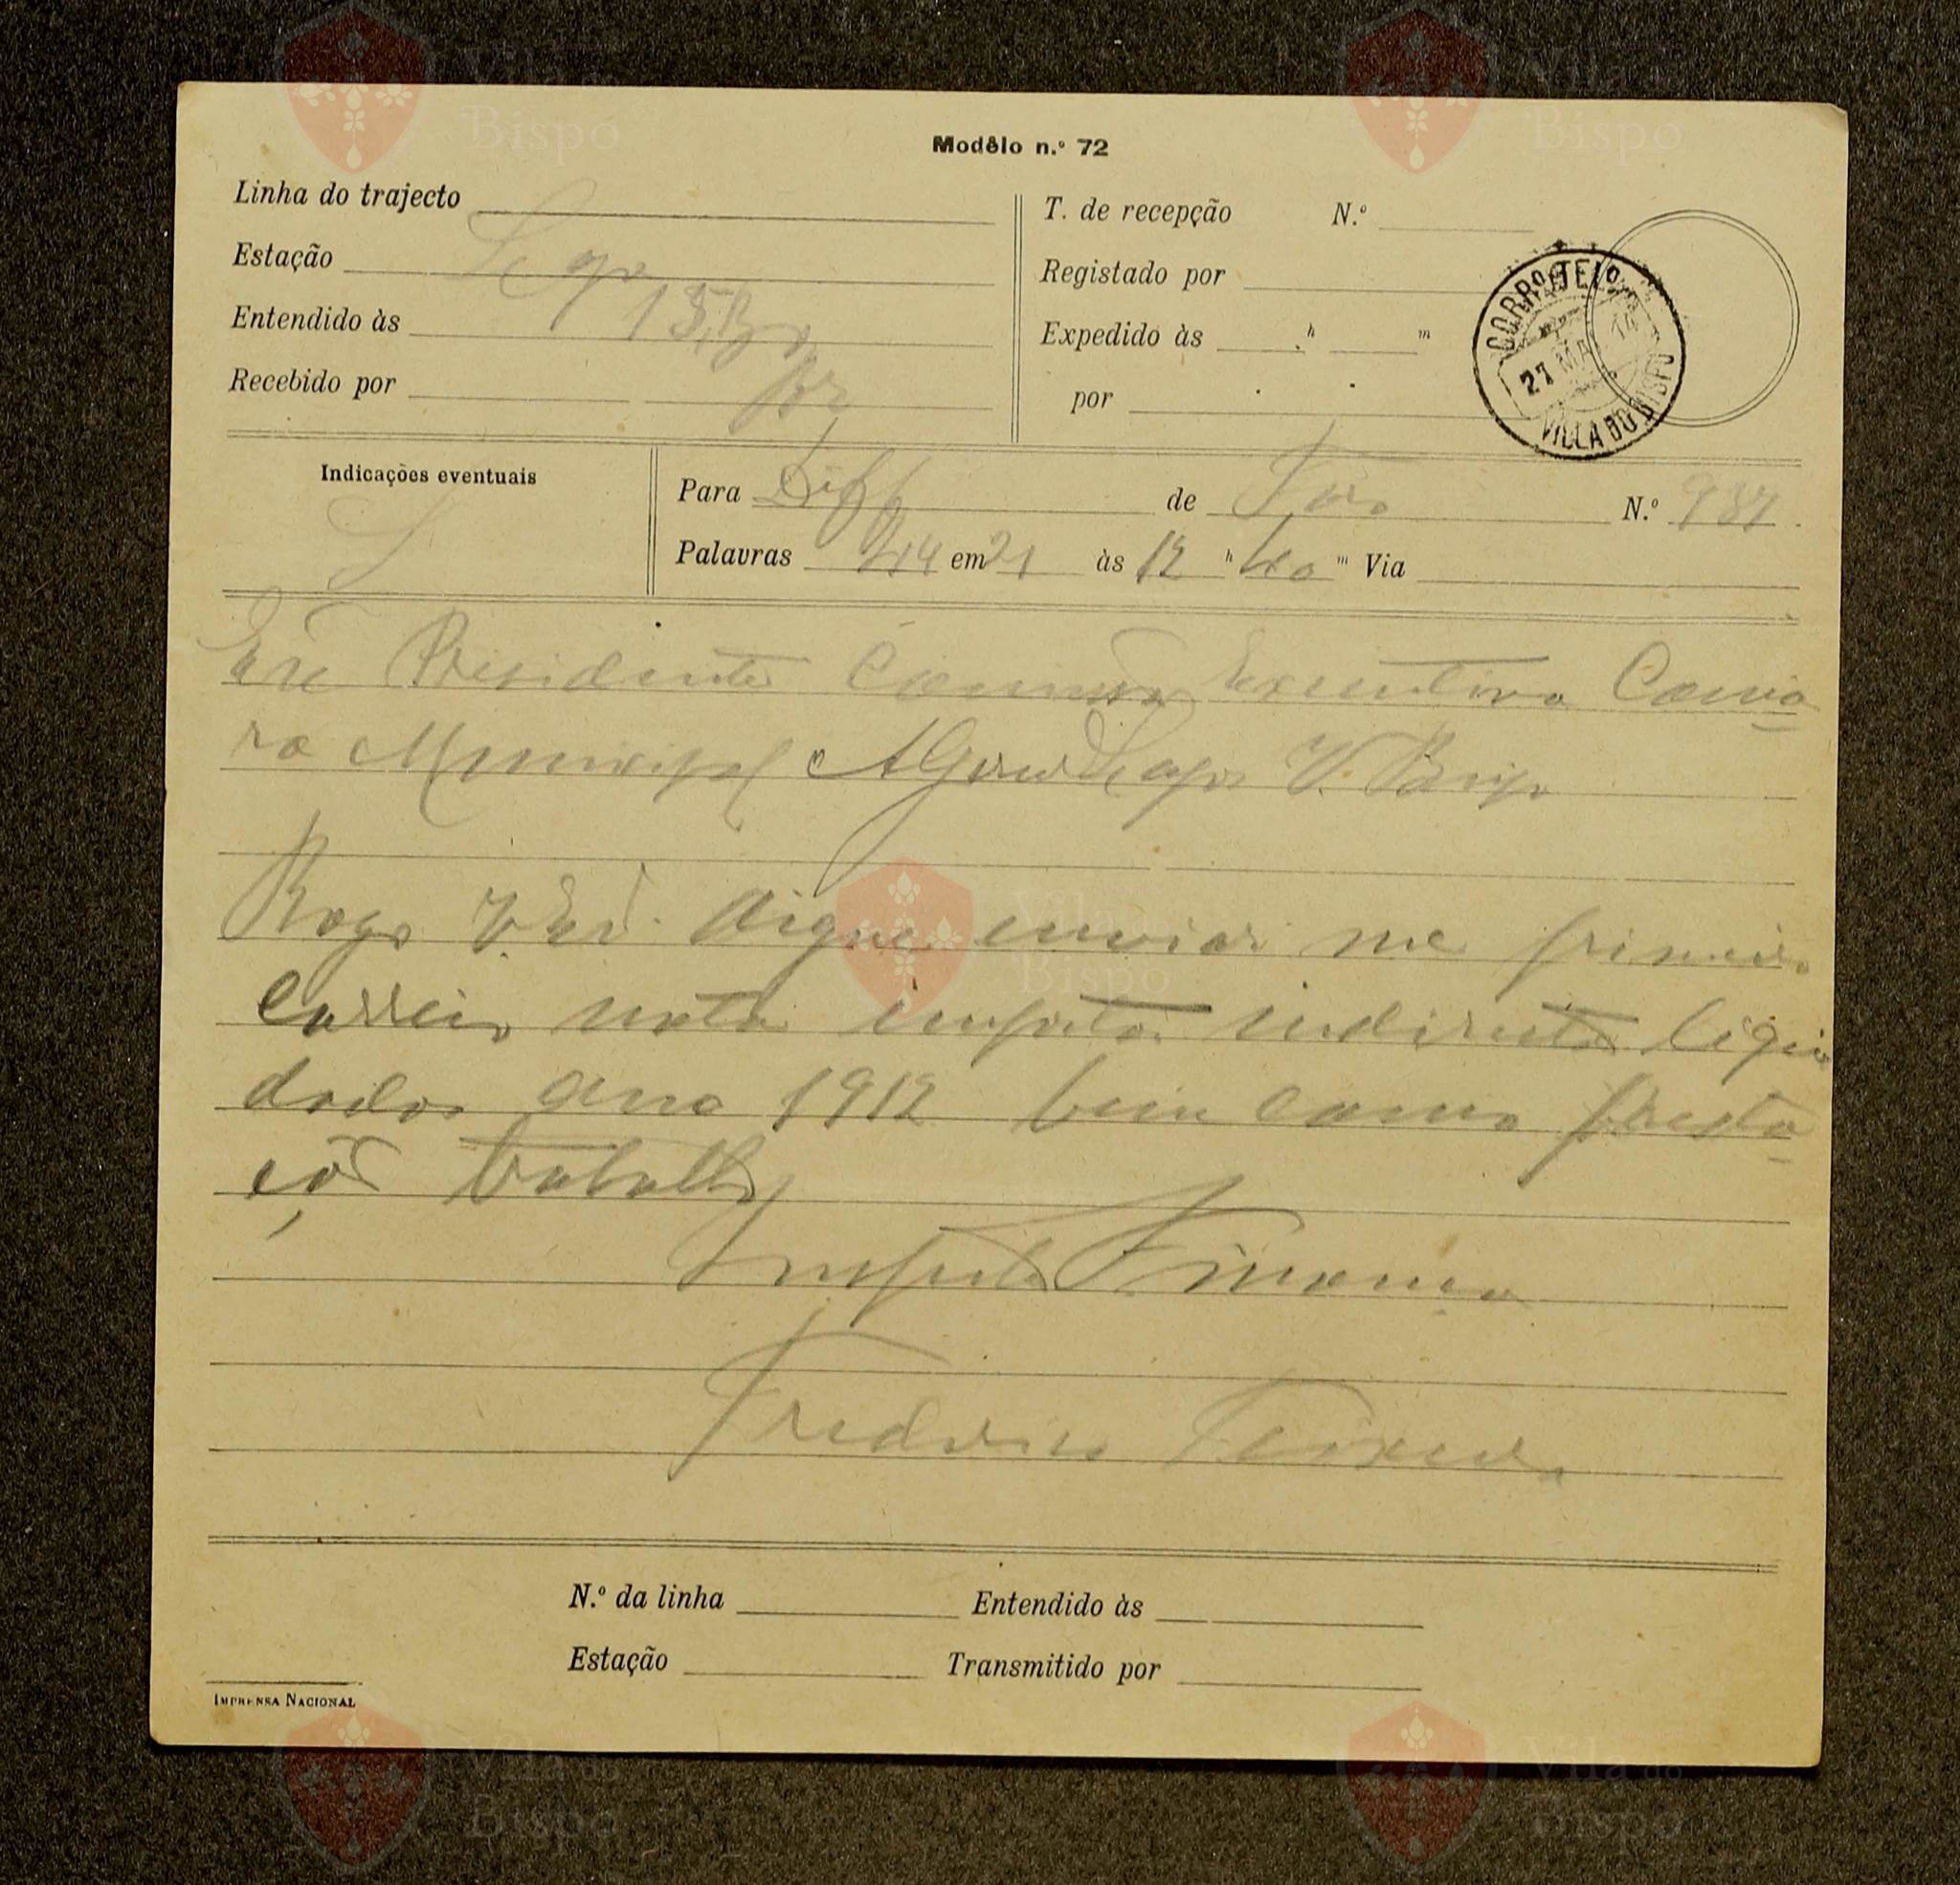 Modêlo n.º 72
Linha do trajecto
Estação Lagos
Entendido às 15,30
Recebido por
T. de recepção N.º
Registado por
Expedido às h m
por
CORREIO E TELO
27 MAI 14
VILLA DO BISPO
Indicações eventuais
Para Diff de Faro N.º 937
Palavras 44 em 21 às 12 h 40 m Via
Exe Presidente Comissão Executiva Cama
ra Municipal Lagos V. Bispo
Rogo V. Exª. digne enviar me primeiro
correio nota impostos indirectos liqui
dados ano 1912 bem como presta
ção trabalho
Inspector Finanças
Frederico Teixeira
N.º da linha Entendido às
Estação Transmitido por
IMPRENSA NACIONAL
Vila do
Bispo